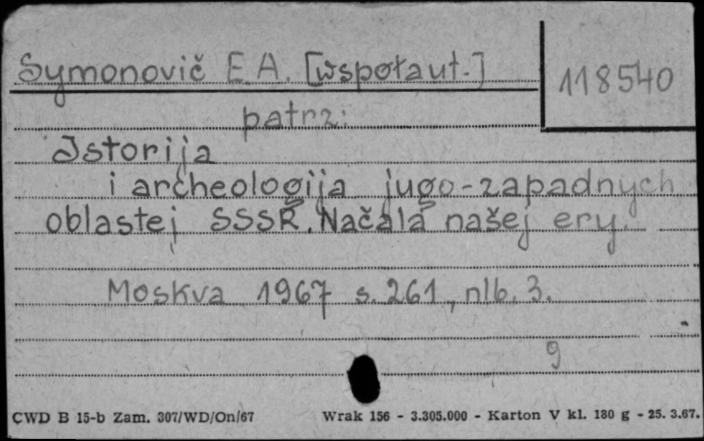 Symonovič E.A. [współaut.]
118540
patrz:
Istorija
i archeologija jugo-zapadnych
oblastej SSSR. Načala našej ery.
Moskva 1967 s. 261, nlb. 3.
9
CWD B 15-b Zam. 307/WD/On/67 Wrak 156 - 3.305.000 - Karton V kl. 180 g - 25. 3.67.